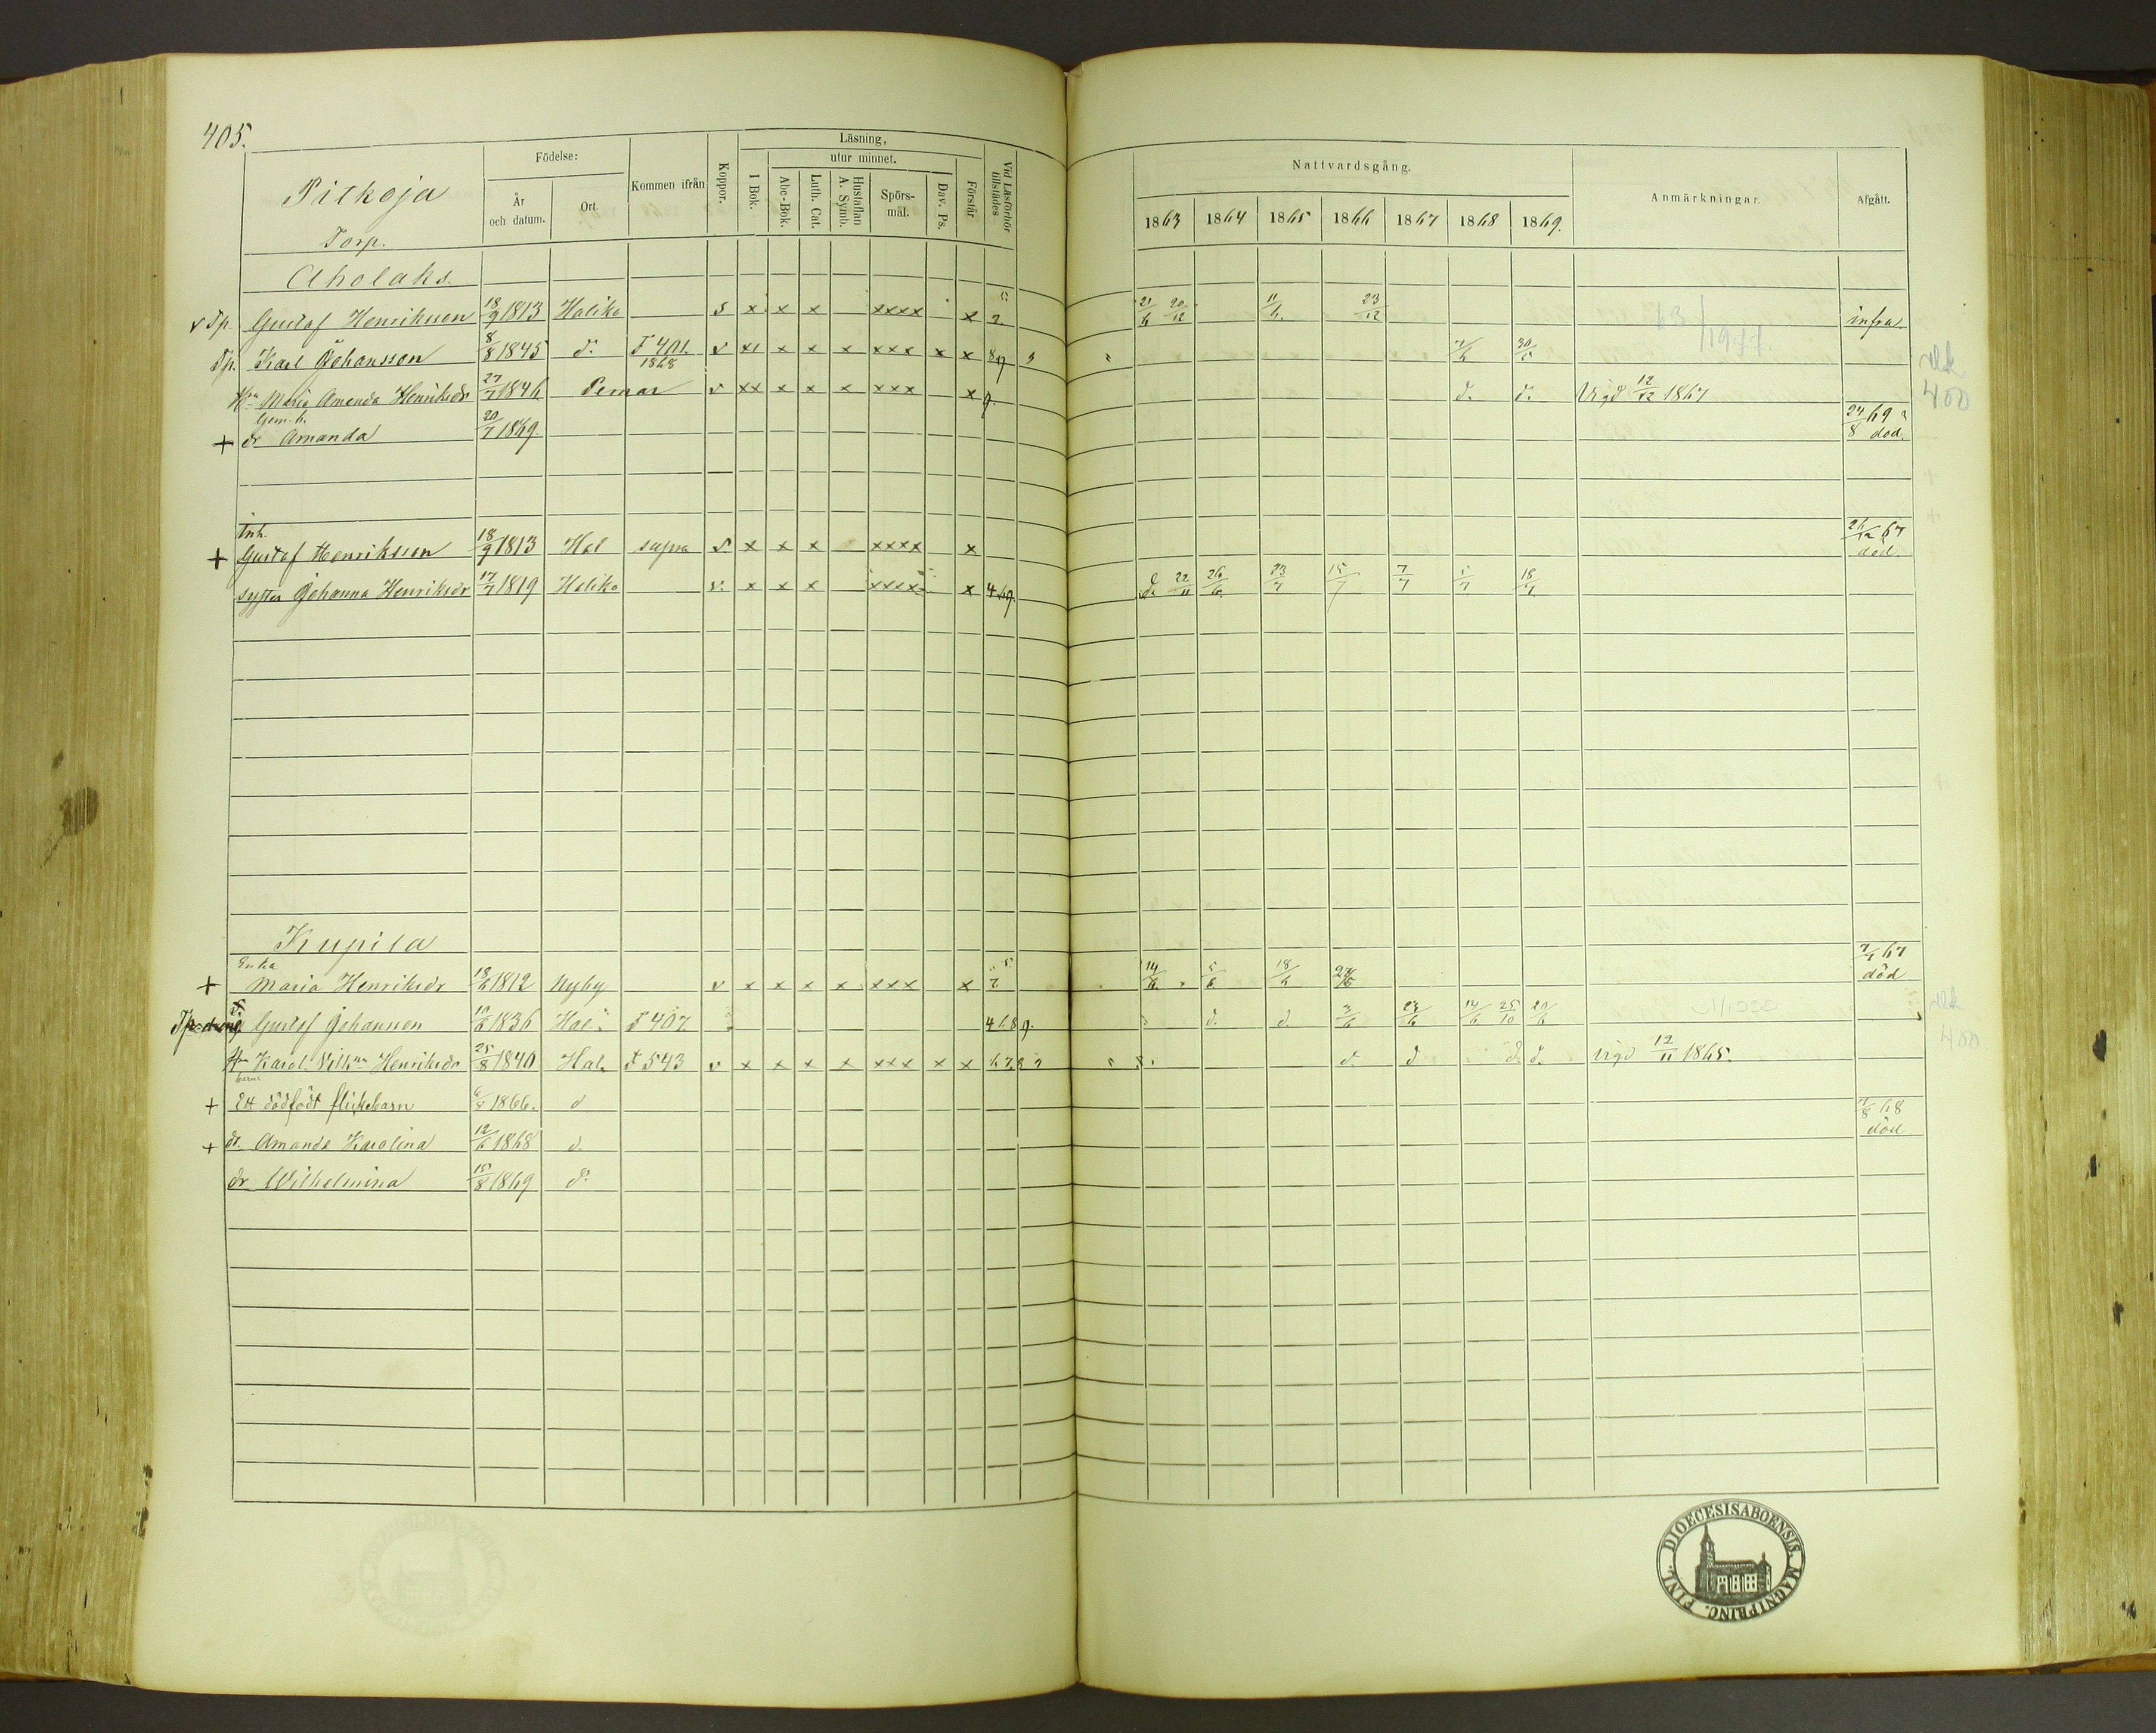 405.
Pitkoja
Torp.
Födelse:
År
och datum.
Ort.
Kommen ifrån
Koppor.
Läsning,
utur minnet.
I Bok.
Abc-Bok.
Luth. Cat.
Hustaflan
A. Symb.
Spörs-
mål.
Dav. Ps.
Förstår
Vid Läsförhör
tillstädes
Nattvardsgång.
1863 1864 1865 1866 1867 1868 1869.
Anmärkningar.
Afgått.
Aholaks.
v Tp. Gustaf Henriksson 18/9 1813 Haliko s x x x xxxx x 2 21/6 20/12 11/6. 23/12 infra
Tp. Karl Johansson 8/8 1845 d:o F 401. 1868 v x x x x xxx x x 89 7/6 30/5
H:u Maria Amanda Henriksdr 27/7 1846 Pemar v xx x x x xxx x 9. d. d:o Vigd 12/12 1867
Gem. h.
+ dr Amanda 20/7 1869. 24/8 69 död.
Inh.
+ Gustaf Henriksson 18/9 1813 Hal supra v x x x xxxx x 26/12 67 död
Syster Johanna Henriksdr 17/7 1819 Haliko v. x x x xxxx x 4 69. 22/11 26/6 23/7 15/7 7/7 5/7 18/7
Kupila
Enka
+ Maria Henriksdr 18/6 1812 Nyby v x x x x xxx x 7 14/6 5/6 18/6 24/6 7/7 67 död
Tp. Gustaf Johansson 10/6 1836 Hal F 407 4 6 8 9. d. d. 3/6 23/6 14/6 25/10 20/6
H:u Karol. Vilh:na Henriksdr 25/8 1840 Hal. F 543 v x x x x xxx x x 6 7 8 9 d. d d. d. Vigd 12/11 1865.
+ Ett dödfödt flickebarn 6/8 1866. d
+ dr. Amanda Karolina 12/6 1868 d. 7/8 68 död
dr Wilhelmina 15/8 1869 d:o
400
400
DIOECESIS ABOENSIS. MAGNI PRINC. FINL.